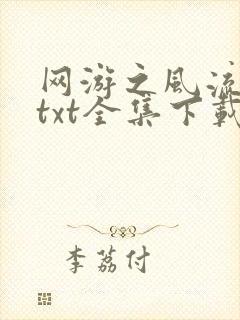 网游之风流
txt全集下载
李荔付